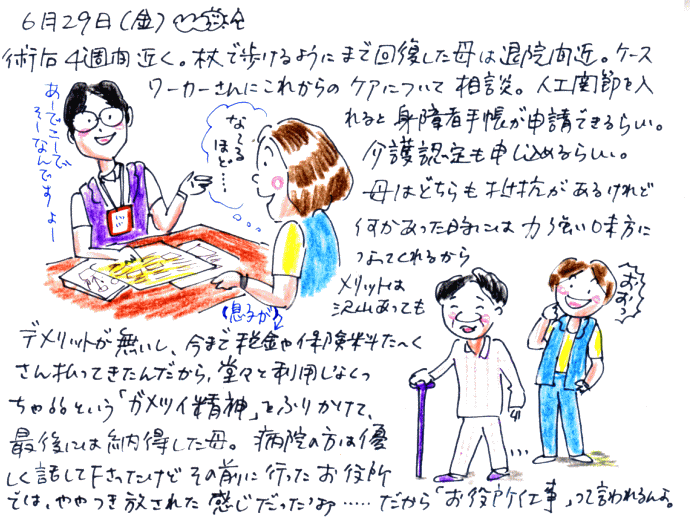 6月29日(金)
術后4週間近く。杖で歩けるようにまで回復した母は退院間近。ケース
ワーカーさんにこれからのケアについて相談。人工関節を入
れると身障者手帳が申請できるらしい。
介護認定も申し込めるらしい。
母はどちらも抵抗があるけれど
何かあった時には力強い味方に
なってくれるから
メリットは
沢山あっても
デメリットが無いし、今まで税金や保険料たーく
さん払ってきたんだから、堂々と利用しなくっ
ちゃぁぁという「ガメツイ精神」をふりかけて、
最後には納得した母。病院の方は優
しく話して下さったけどその前に行ったお役所
では、ややつき放された感じだったなァ……だから「お役所仕事」って言われるんよ。
あーでこーで
そーなんですよー
なーる
ほど…
(息子が)
おおっ